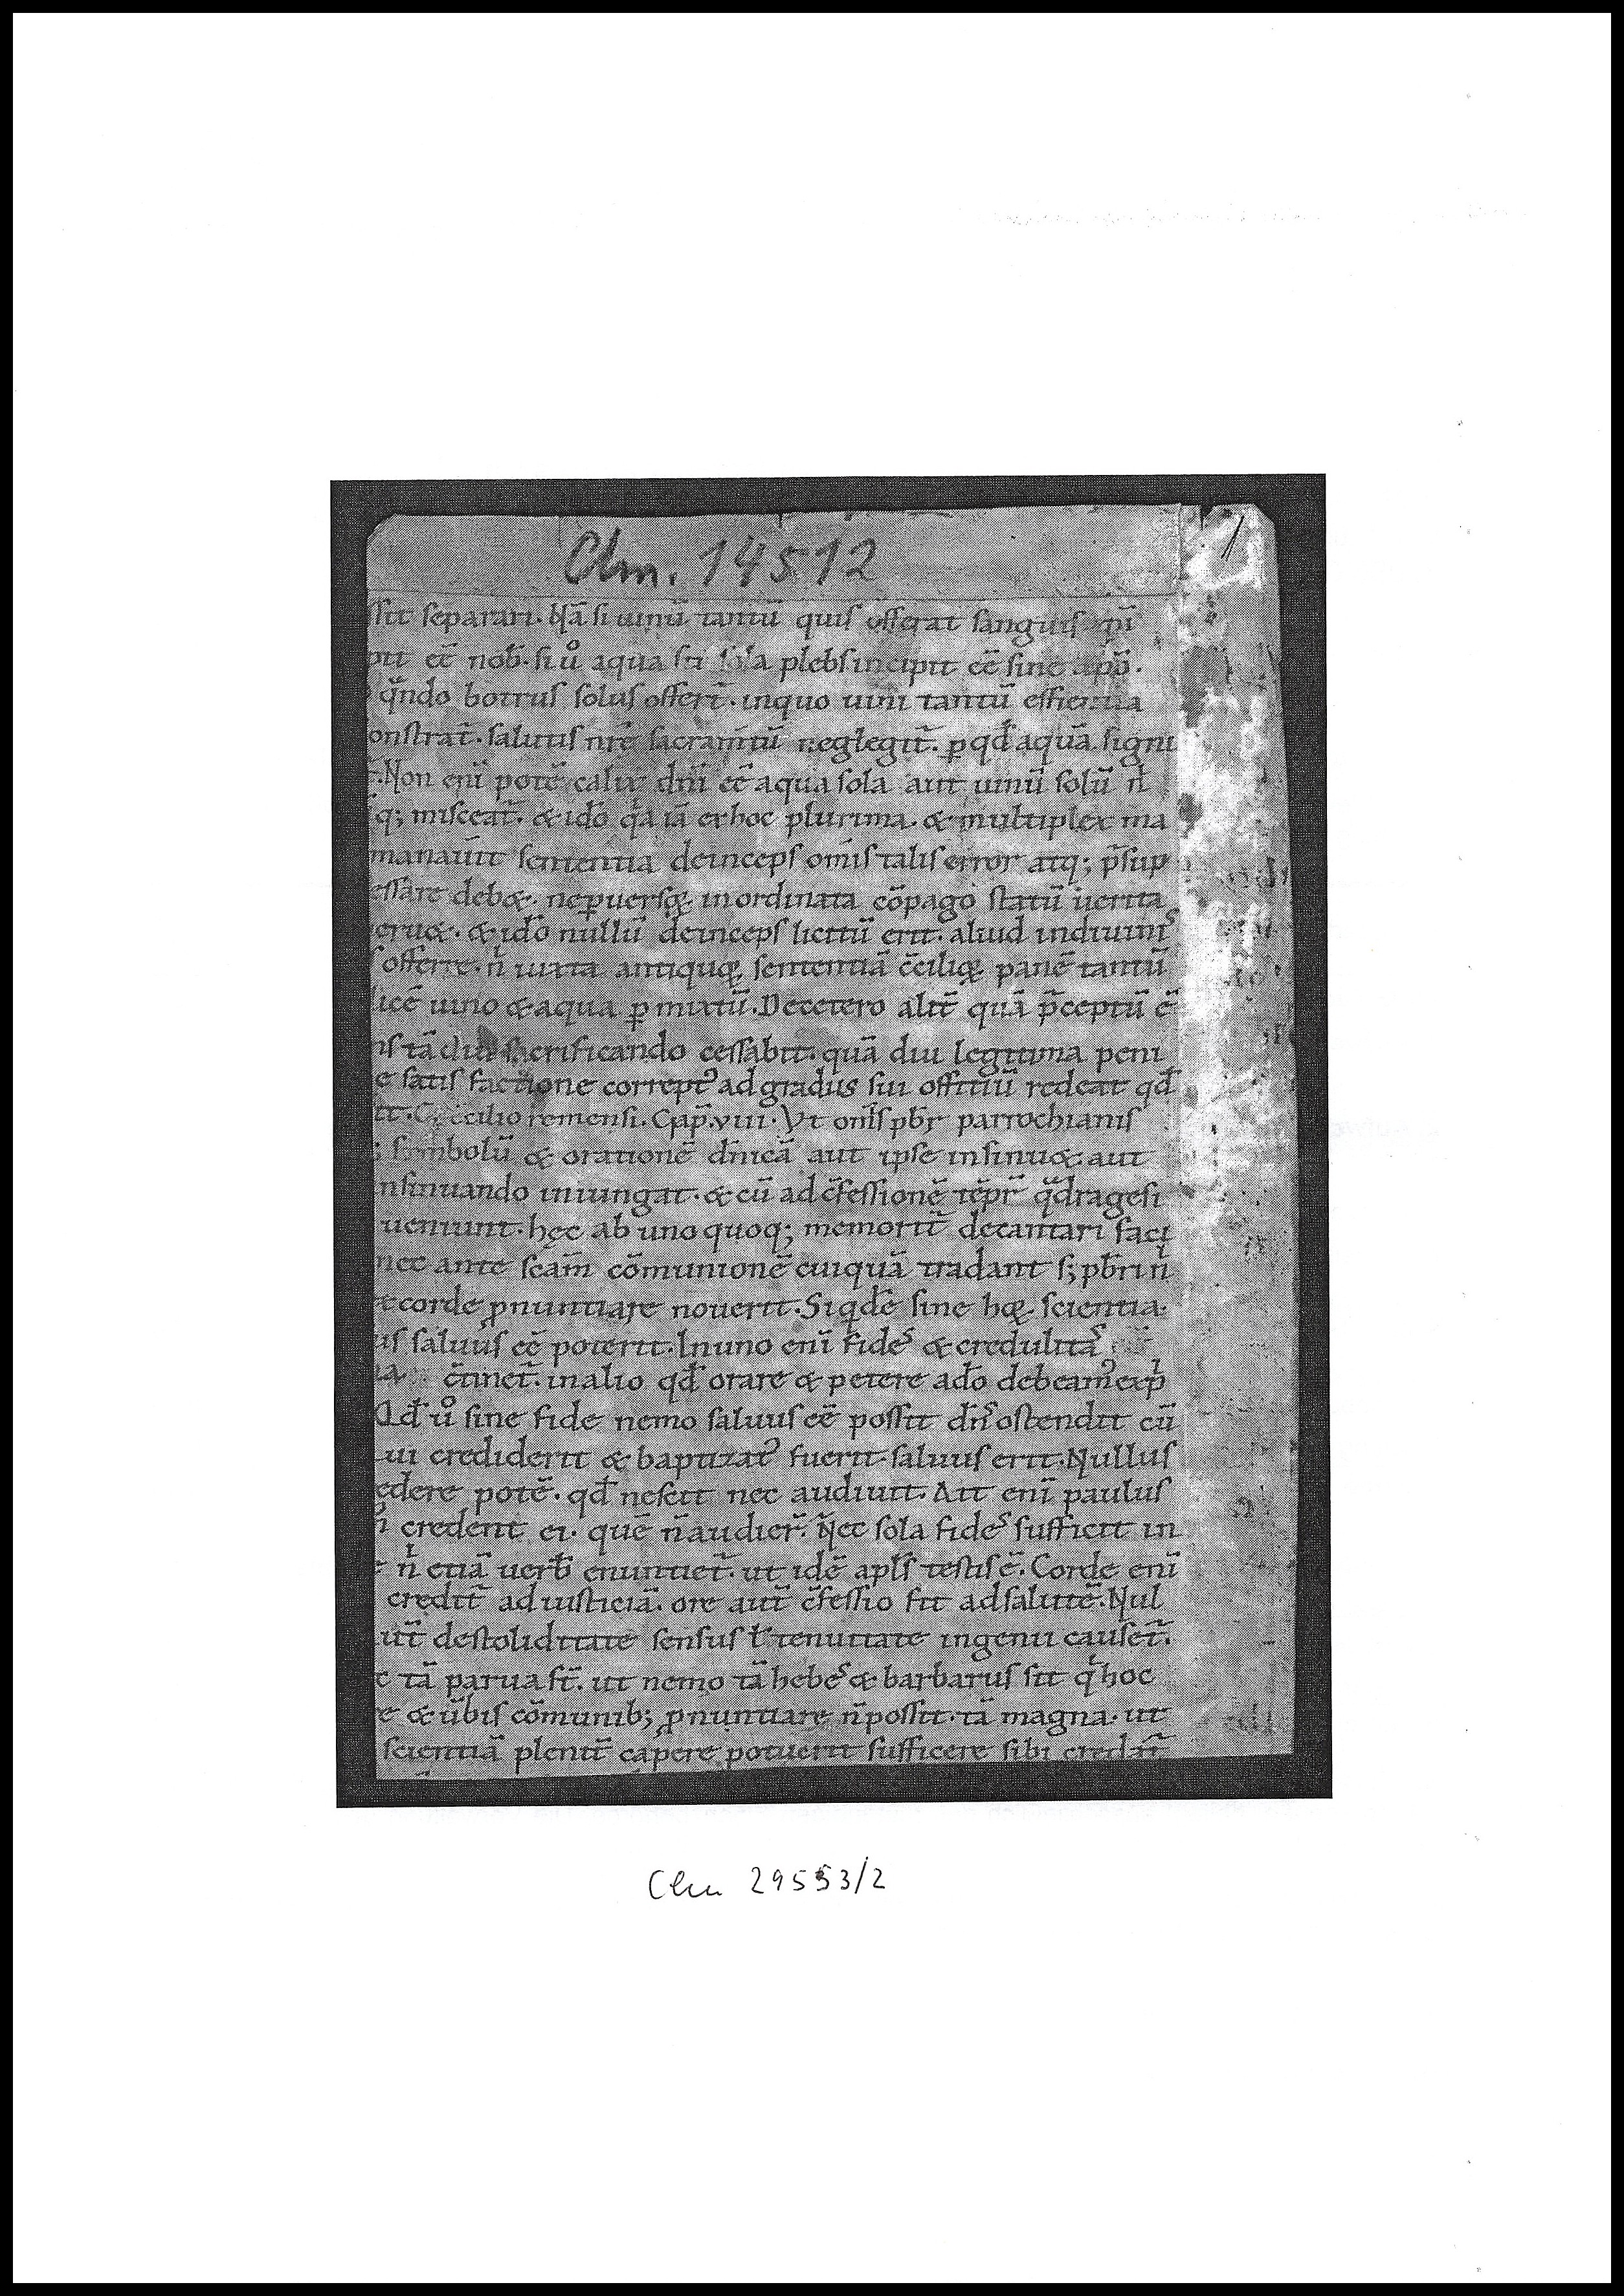 Clm. 14512
1
ſit ſeparari. Nā ſi uinū tantū quiſ offerat ſanguiſ xp̄i
pit eē nob̄. ſi ů aqua ſit ſola plebſ incipit eē ſine xp̄o.
q̄ndo botruſ ſoluſ offert̄. inquo uini tantū efficentia
onſtrat̄. ſalutiſ nr̄ę ſacram̄tū neglegit̄. p̱ qd̄ aquā ſigni
Non enī potē calix dn̄i eē aqua ſola aut uinū ſolū n̄
q; miſceat̄. & ido̅ qa iā ex hoc plurima. & multiplex ma
manauit ſententia deincepſ om̄iſ taliſ error atq; p̄ſup
eſſare deb&. ne p̱uerſę inordinata cōpago ſtatū uerita
eru&. & ido̅ nullū deincepſ licitū erit. aliud indiuiniſ
offerre. n̄ iuxta antiquę ſententiā c̄cilię panē tantū
licē uino & aqua p̱mixtū. Decetero alit̄ quā p̄ceptū ē
iſ tā diu ſacrificando ceſſabit. quā diu legitima peni
e ſatiſ factione corrept᾿ ad graduſ ſui offitiū redeat qd̄
it. Ex c̄cilio remenſi. Cap̄. viii. Vt om̄ſ pb̄r parrochianiſ
ſimbolū & orationē dn̄icā aut ipſe inſinu& aut
nſinuando iniungat. & cū ad c̄feſſionē tēpr̄ q̄drageſi
ueniunt. hęc ab uno quoq; memorit̄ decantari faci
nec ante ſcām cōmunionē cuiquā tradant ſ; pb̄ri n̄
e corde ꝓnuntiare nouerit. Siqdē ſine hę ſcientia
uſ ſaluuſ eē poterit. In uno enī fideſ & credulitaſ
c̄tinet̄. in alio qd̄ orare & petere ado̅ debeam᾿ exp̄
Qd̄ ů ſine fide nemo ſaluuſ eē poſſit dn̄ſ oſtendit cū
ui crediderit & baptizat᾿ fuerit. ſaluuſ erit. Nulluſ
edere potē. qd̄ neſcit nec audiuit. Ait enī pauluſ
credent ei. quē n̄ audier̄. Nec ſola fideſ ſufficit in
n̄ etiā uerb̄ enuntiet̄. ut idē apl̄ſ teſtiſ ē. Corde enī
credit̄ ad iuſticiā. ore aut̄ c̄feſſio fit ad ſalutē. Nul
ut̄ deſtoliditate ſenſuſ ł tenuitate ingenii cauſet̄.
tā parua ſt̄. ut nemo tā hebeſ & barbaruſ ſit q hoc
e & ūbiſ cōmunib; ꝓnuntiare n̄ poſſit. tā magna. ut
ſcientiā plenit̄ capere potuerit ſufficere ſibi credat̄
Clm 29553/2